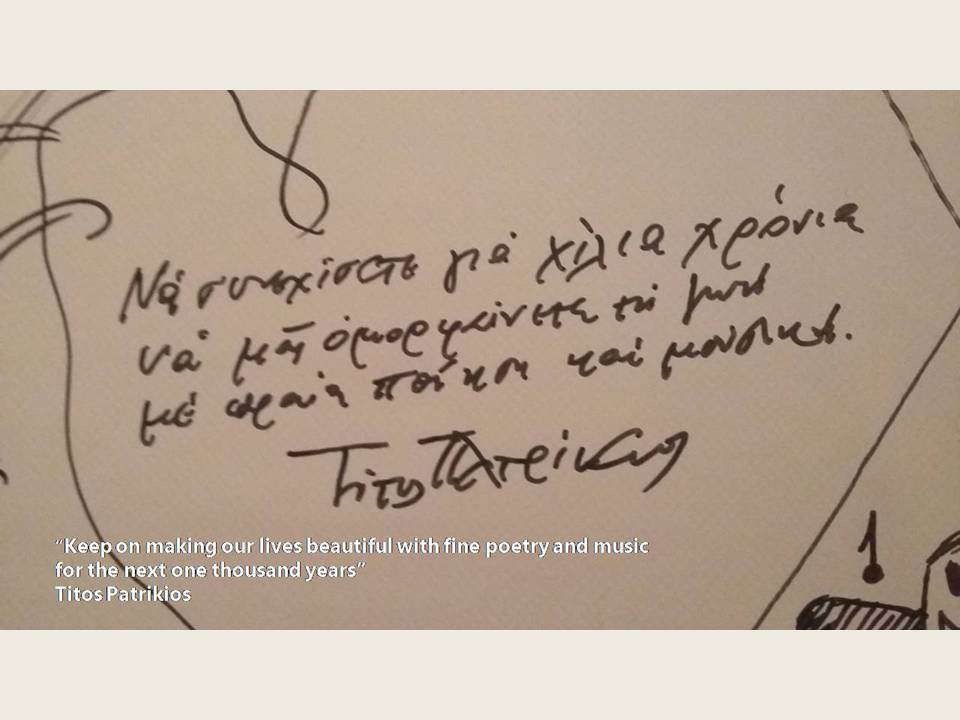 Νά συνεχίσετε γιά χίλια χρόνια
νά μᾶς ὀμορφαίνετε τή ζωή
μέ ὡραία ποίηση καί μουσική.
Τίτος Πατρίκιος
“Keep on making our lives beautiful with fine poetry and music
for the next one thousand years”
Titos Patrikios